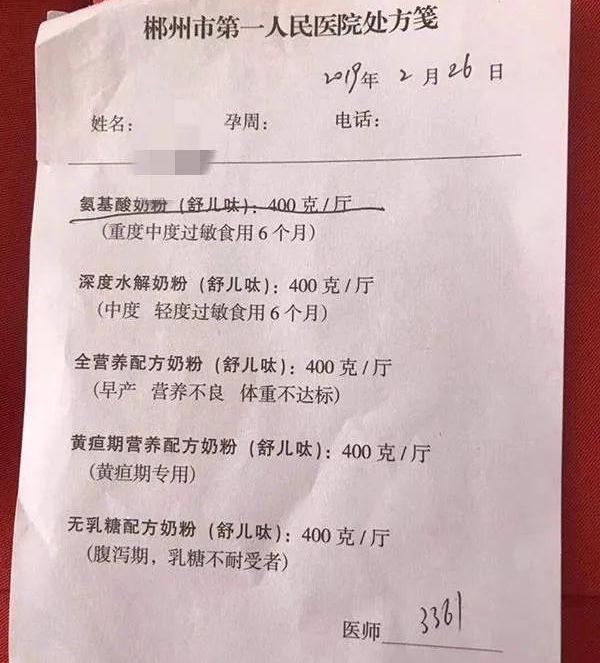 郴州市第一人民医院处方笺
2019年 2 月 26 日
姓名: 孕周: 电话:
氨基酸奶粉（舒儿呔）: 400 克/厅
（重度中度过敏食用6个月）
深度水解奶粉（舒儿呔）: 400 克/厅
（中度 轻度过敏食用6个月）
全营养配方奶粉（舒儿呔）: 400 克/厅
（早产 营养不良 体重不达标）
黄疸期营养配方奶粉（舒儿呔）: 400 克/厅
（黄疸期专用）
无乳糖配方奶粉（舒儿呔）: 400 克/厅
（腹泻期，乳糖不耐受者）
医师 3361